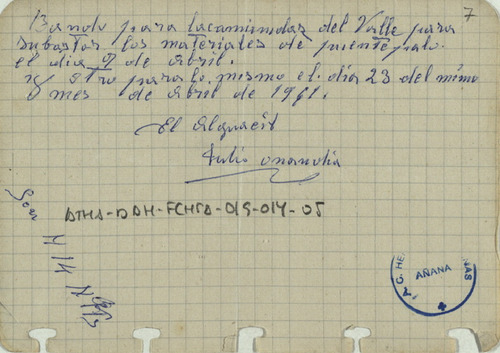 7
Bando para Lacamimdas del Valle para
subastar los materiales de puentepato.
el dia 9 de Abril.
y otro para lo mismo el dia 23 del mimo
mes de Abril de 1961.
El Alguacil
Julio
ATHA-DAH-FCHTA-019-014-05
AÑANA